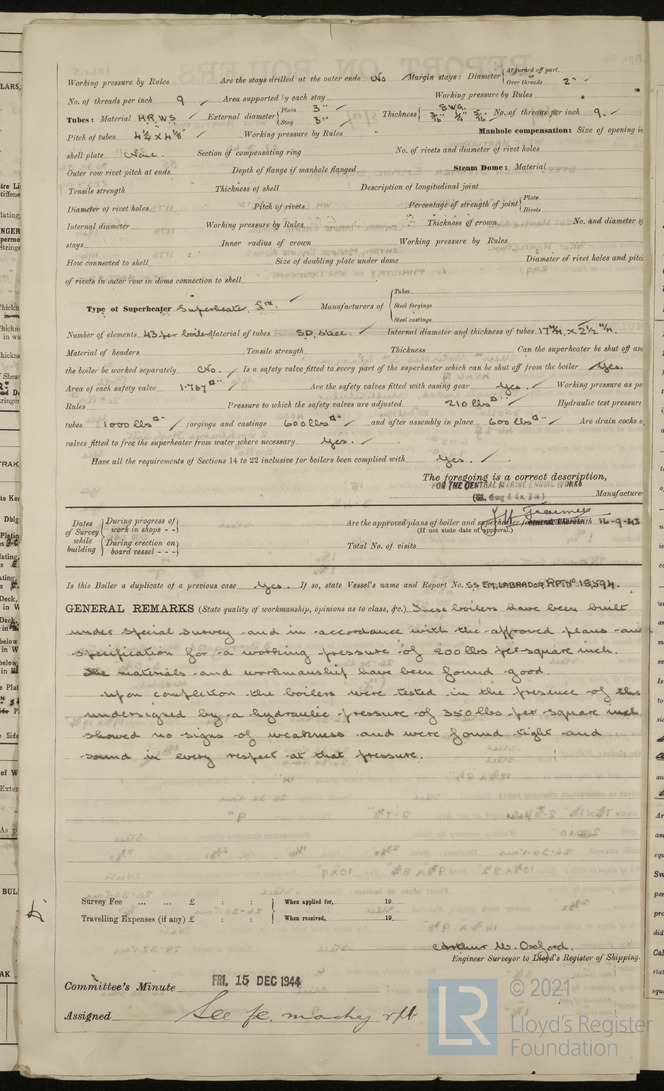 Working pressure by Rules Are the stays drilled at the outer ends No Margin stays: Diameter { At turned off part or Over threads 2"
No. of threads per inch 9 Area supported by each stay Working pressure by Rules
Tubes: Material H.R.W.S External diameter { Plain 3" Stay 3" Thickness { 8 W.G. 5/16 No. of threads per inch 9.
Pitch of tubes 4¼ x 4⅛" Working pressure by Rules Manhole compensation: Size of opening in
shell plate None. Section of compensating ring No. of rivets and diameter of rivet holes
Outer row rivet pitch at ends Depth of flange if manhole flanged Steam Dome: Material
Tensile strength Thickness of shell Description of longitudinal joint
Diameter of rivet holes Pitch of rivets Percentage of strength of joint { Plate Rivets
Internal diameter Working pressure by Rules Thickness of crown No. and diameter of
stays Inner radius of crown Working pressure by Rules
How connected to shell Size of doubling plate under dome Diameter of rivet holes and pitch
of rivets in outer row in dome connection to shell
Type of Superheater Superheater Manufacturers of { Tubes Steel forgings Steel castings
Number of elements 43 per boiler Material of tubes S.D. Steel. Internal diameter and thickness of tubes 17 m/m x 2½ m/m.
Material of headers Tensile strength Thickness Can the superheater be shut off an
the boiler be worked separately No. Is a safety valve fitted to every part of the superheater which can be shut off from the boiler Yes.
Area of each safety valve 1.767 □" Are the safety valves fitted with easing gear Yes. Working pressure as pe
Rules Pressure to which the safety valves are adjusted 210 lbs □" Hydraulic test pressure
tubes 1000 lbs □" forgings and castings 600 lbs □" and after assembly in place 600 lbs □" Are drain cocks o
valves fitted to free the superheater from water where necessary Yes.
Have all the requirements of Sections 14 to 22 inclusive for boilers been complied with Yes.
The foregoing is a correct description,
FOR THE CENTRAL MARINE ENGINE WORKS
Manufacture
Dates of Survey while building { During progress of work in shops - - During erection on board vessel - - -
Are the approved plans of boiler and superheater 16-9-43
(If not state date of approval.)
Total No. of visits
Is this Boiler a duplicate of a previous case Yes. If so, state Vessel's name and Report No. SS EM. LABRADOR RPT No 18,594.
GENERAL REMARKS (State quality of workmanship, opinions as to class, &c.) These boilers have been built
under special survey and in accordance with the approved plans an
specification for a working pressure of 200 lbs per square inch.
The materials and workmanship have been found good.
Upon completion the boilers were tested in the presence of the
undersigned by a hydraulic pressure of 350 lbs per square inch
showed no signs of weakness and were found tight and
sound in every respect at that pressure.
Survey Fee ... ... £ : : When applied for, 19
Travelling Expenses (if any) £ : : When received, 19
Arthur W. Oxford.
Engineer Surveyor to Lloyd's Register of Shipping.
Committee's Minute FRI. 15 DEC 1944
Assigned See fe. machy rpt
LR
© 2021
Lloyd's Register
Foundation